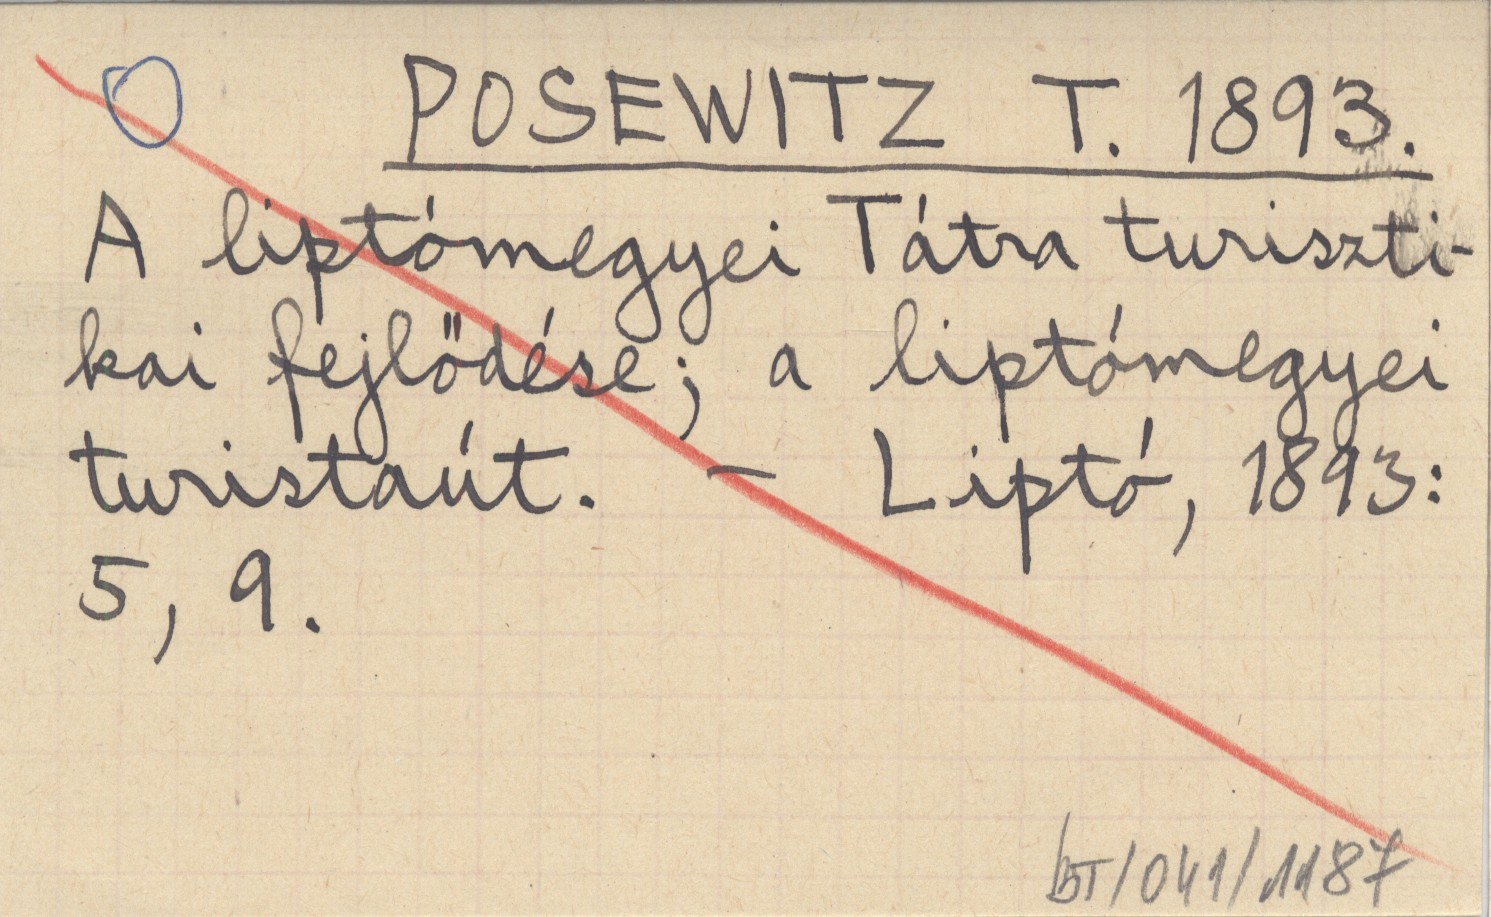 POSEWITZ T. 1893.
A liptómegyei Tátra turiszti-
kai fejlődése; a liptómegyei
turistaút. — Liptó, 1893:
5, 9.
BT/041/1187